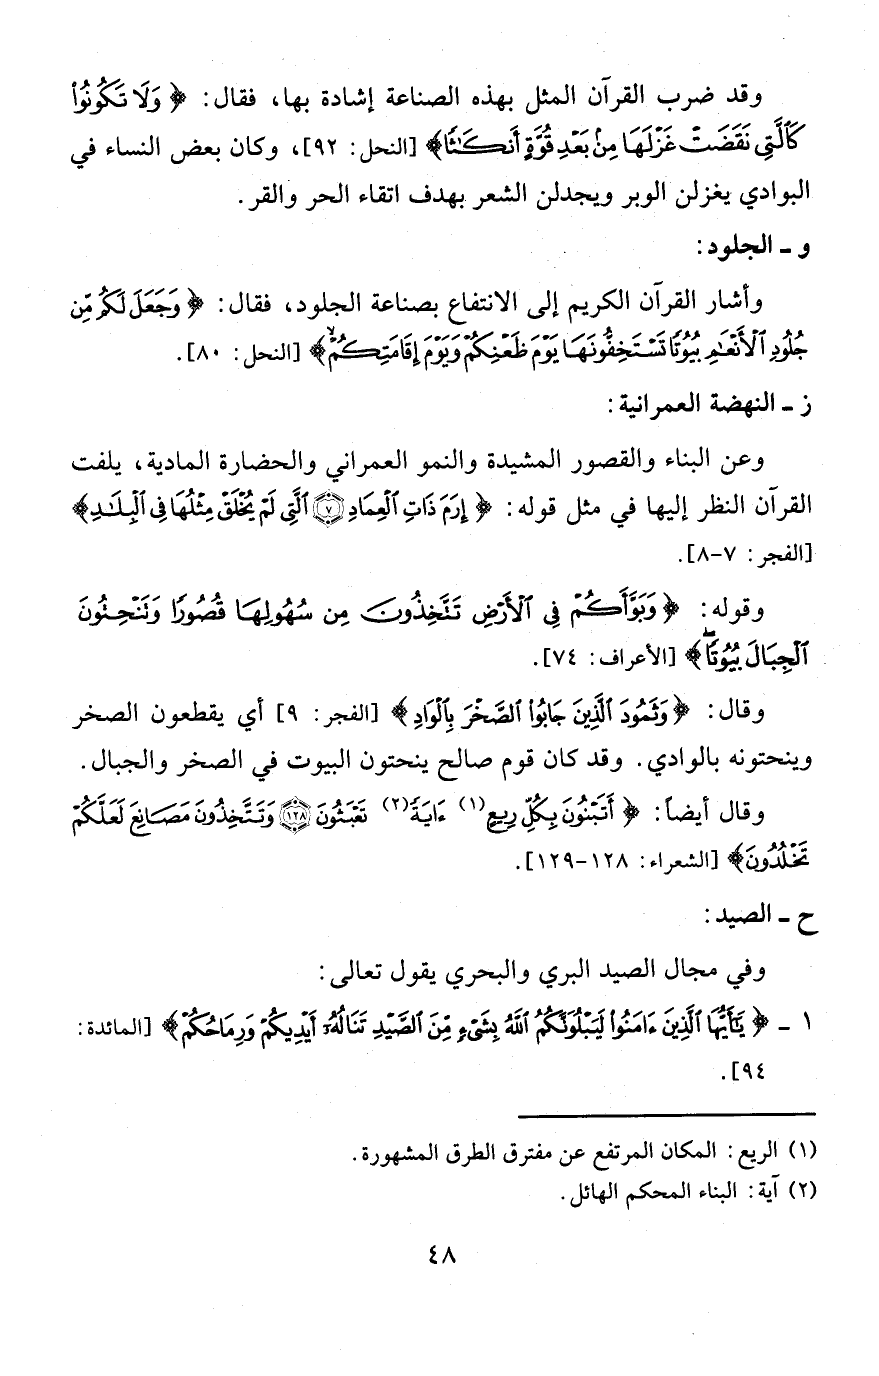 وقد ضرب القرآن المثل بهذه الصناعة إشادة بها، فقال: ﴿وَلَا تَكُونُوا۟
كَٱلَّتِى نَقَضَتْ غَزْلَهَا مِنۢ بَعْدِ قُوَّةٍ أَنكَـٰثًا﴾ [النحل: ٩٢]، وكان بعض النساء في
البوادي يغزلن الوبر ويجدلن الشعر بهدف اتقاء الحر والقر.
و - الجلود:
وأشار القرآن الكريم إلى الانتفاع بصناعة الجلود، فقال: ﴿وَجَعَلَ لَكُم مِّن
جُلُودِ ٱلْأَنْعَـٰمِ بُيُوتًا تَسْتَخِفُّونَهَا يَوْمَ ظَعْنِكُمْ وَيَوْمَ إِقَامَتِكُمْ ۙ﴾ [النحل: ٨٠].
ز - النهضة العمرانية:
وعن البناء والقصور المشيدة والنمو العمراني والحضارة المادية، يلفت
القرآن النظر إليها في مثل قوله: ﴿إِرَمَ ذَاتِ ٱلْعِمَادِ ٧ ٱلَّتِى لَمْ يُخْلَقْ مِثْلُهَا فِى ٱلْبِلَـٰدِ﴾
[الفجر: ٧-٨].
وقوله: ﴿وَبَوَّأَكُمْ فِى ٱلْأَرْضِ تَتَّخِذُونَ مِن سُهُولِهَا قُصُورًا وَتَنْحِتُونَ
ٱلْجِبَالَ بُيُوتًا ۖ﴾ [الأعراف: ٧٤].
وقال: ﴿وَثَمُودَ ٱلَّذِينَ جَابُوا۟ ٱلصَّخْرَ بِٱلْوَادِ﴾ [الفجر: ٩] أي يقطعون الصخر
وينحتونه بالوادي. وقد كان قوم صالح ينحتون البيوت في الصخر والجبال.
وقال أيضاً: ﴿أَتَبْنُونَ بِكُلِّ رِيعٍ(١) ءَايَةً(٢) تَعْبَثُونَ ١٢٨ وَتَتَّخِذُونَ مَصَانِعَ لَعَلَّكُمْ
تَخْلُدُونَ﴾ [الشعراء: ١٢٨-١٢٩].
ح - الصيد:
وفي مجال الصيد البري والبحري يقول تعالى:
١ - ﴿يَـٰٓأَيُّهَا ٱلَّذِينَ ءَامَنُوا۟ لَيَبْلُوَنَّكُمُ ٱللَّهُ بِشَىْءٍ مِّنَ ٱلصَّيْدِ تَنَالُهُۥٓ أَيْدِيكُمْ وَرِمَاحُكُمْ﴾ [المائدة:
٩٤].
(١) الريع: المكان المرتفع عن مفترق الطرق المشهورة.
(٢) آية: البناء المحكم الهائل.
٤٨